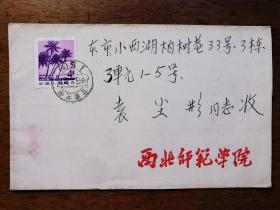 东京小西湖柏树巷33号.3栋
3单元1-5号.
袁尘彤同志收
西北师范学院